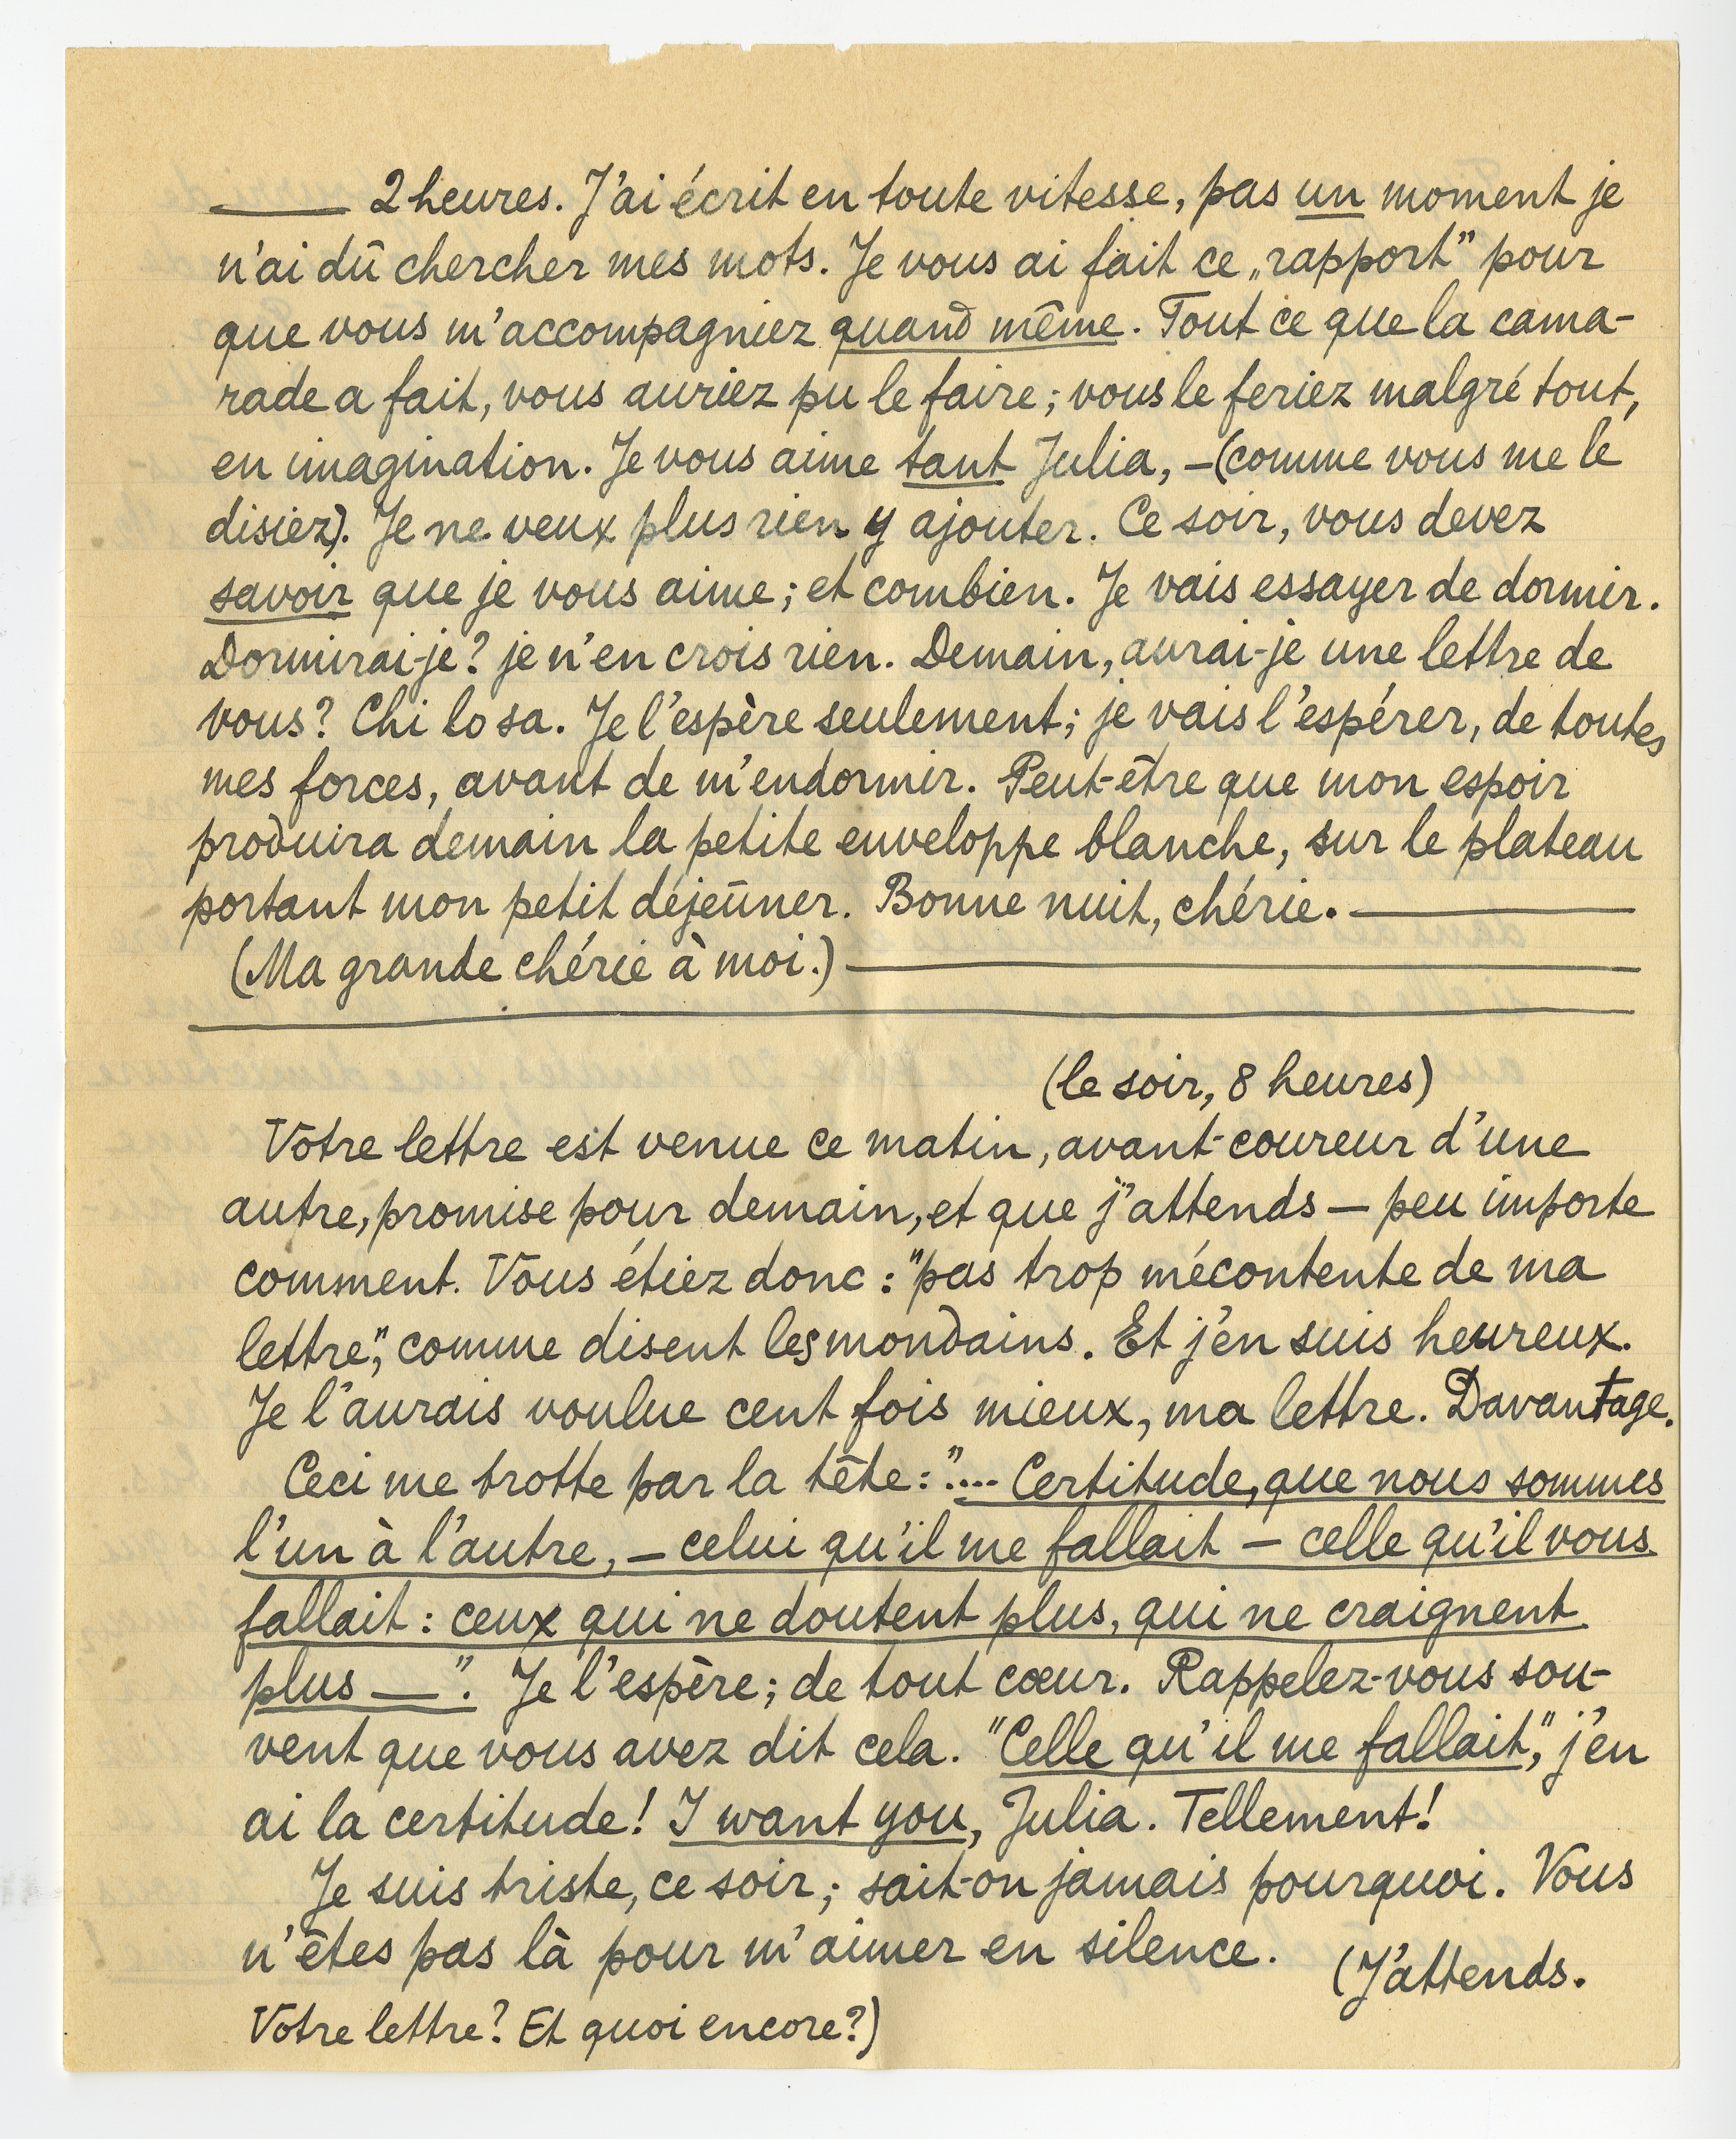 —— 2 heures. J'ai écrit en toute vitesse, pas un moment je
n'ai dû chercher mes mots. Je vous ai fait ce „rapport" pour
que vous m'accompagniez quand même. Tout ce que la cama-
rade a fait, vous auriez pu le faire; vous le feriez malgré tout,
en imagination. Je vous aime tant Julia, – (comme vous me le
disiez). Je ne veux plus rien y ajouter. Ce soir, vous devez
savoir que je vous aime; et combien. Je vais essayer de dormir.
Dormirai-je? je n'en crois rien. Demain, aurai-je une lettre de
vous? Chi lo sa. Je l'espère seulement; je vais l'espérer, de toutes
mes forces, avant de m'endormir. Peut-être que mon espoir
produira demain la petite enveloppe blanche, sur le plateau
portant mon petit déjeûner. Bonne nuit, chérie. ——
(Ma grande chérie à moi.) ——
(le soir, 8 heures)
Vôtre lettre est venue ce matin, avant-coureur d'une
autre, promise pour demain, et que j'attends — peu importe
comment. Vous étiez donc: "pas trop mécontente de ma
lettre", comme disent les mondains. Et j'en suis heureux.
Je l'aurais voulue cent fois mieux, ma lettre. Davantage.
Ceci me trotte par la tête: ".... Certitude, que nous sommes
l'un à l'autre, – celui qu'il me fallait – celle qu'il vous
fallait: ceux qui ne doutent plus, qui ne craignent
plus —". Je l'espère; de tout cœur. Rappelez-vous sou-
vent que vous avez dit cela. "Celle qu'il me fallait", j'en
ai la certitude! I want you, Julia. Tellement!
Je suis triste, ce soir; sait-on jamais pourquoi. Vous
n'êtes pas là pour m'aimer en silence. (J'attends.
Votre lettre? Et quoi encore?)